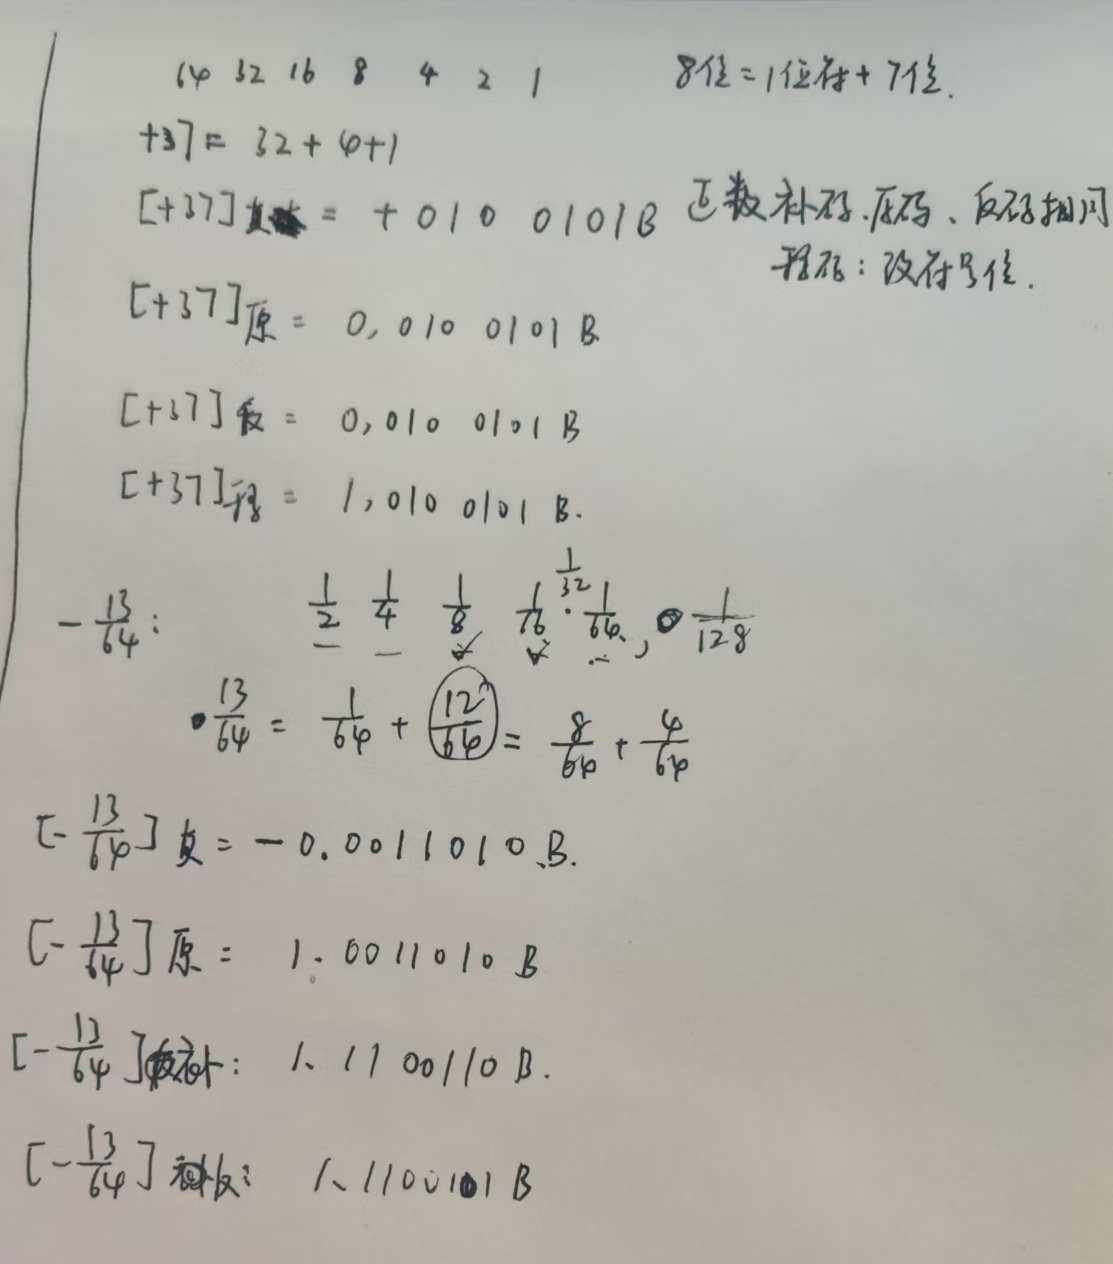 64 32 16 8 4 2 1 8位=1位符+7位.
+37= 32+4+1
[+37]真 = +010 0101B 正数补码.原码、反码相同
移码:改符号位.
[+37]原= 0,010 0101 B.
[+37]反= 0,010 0101 B
[+37]移= 1,010 0101 B.
-13/64: 1/2 1/4 1/8 1/16 . 1/32 1/64, 1/128
13/64 = 1/64 + 12/64 = 8/64 + 4/64
[-13/64]真=-0.0011010.B.
[-13/64]原= 1.0011010 B
[-13/64]补: 1.1100110 B.
[-13/64]反: 1.1100101 B